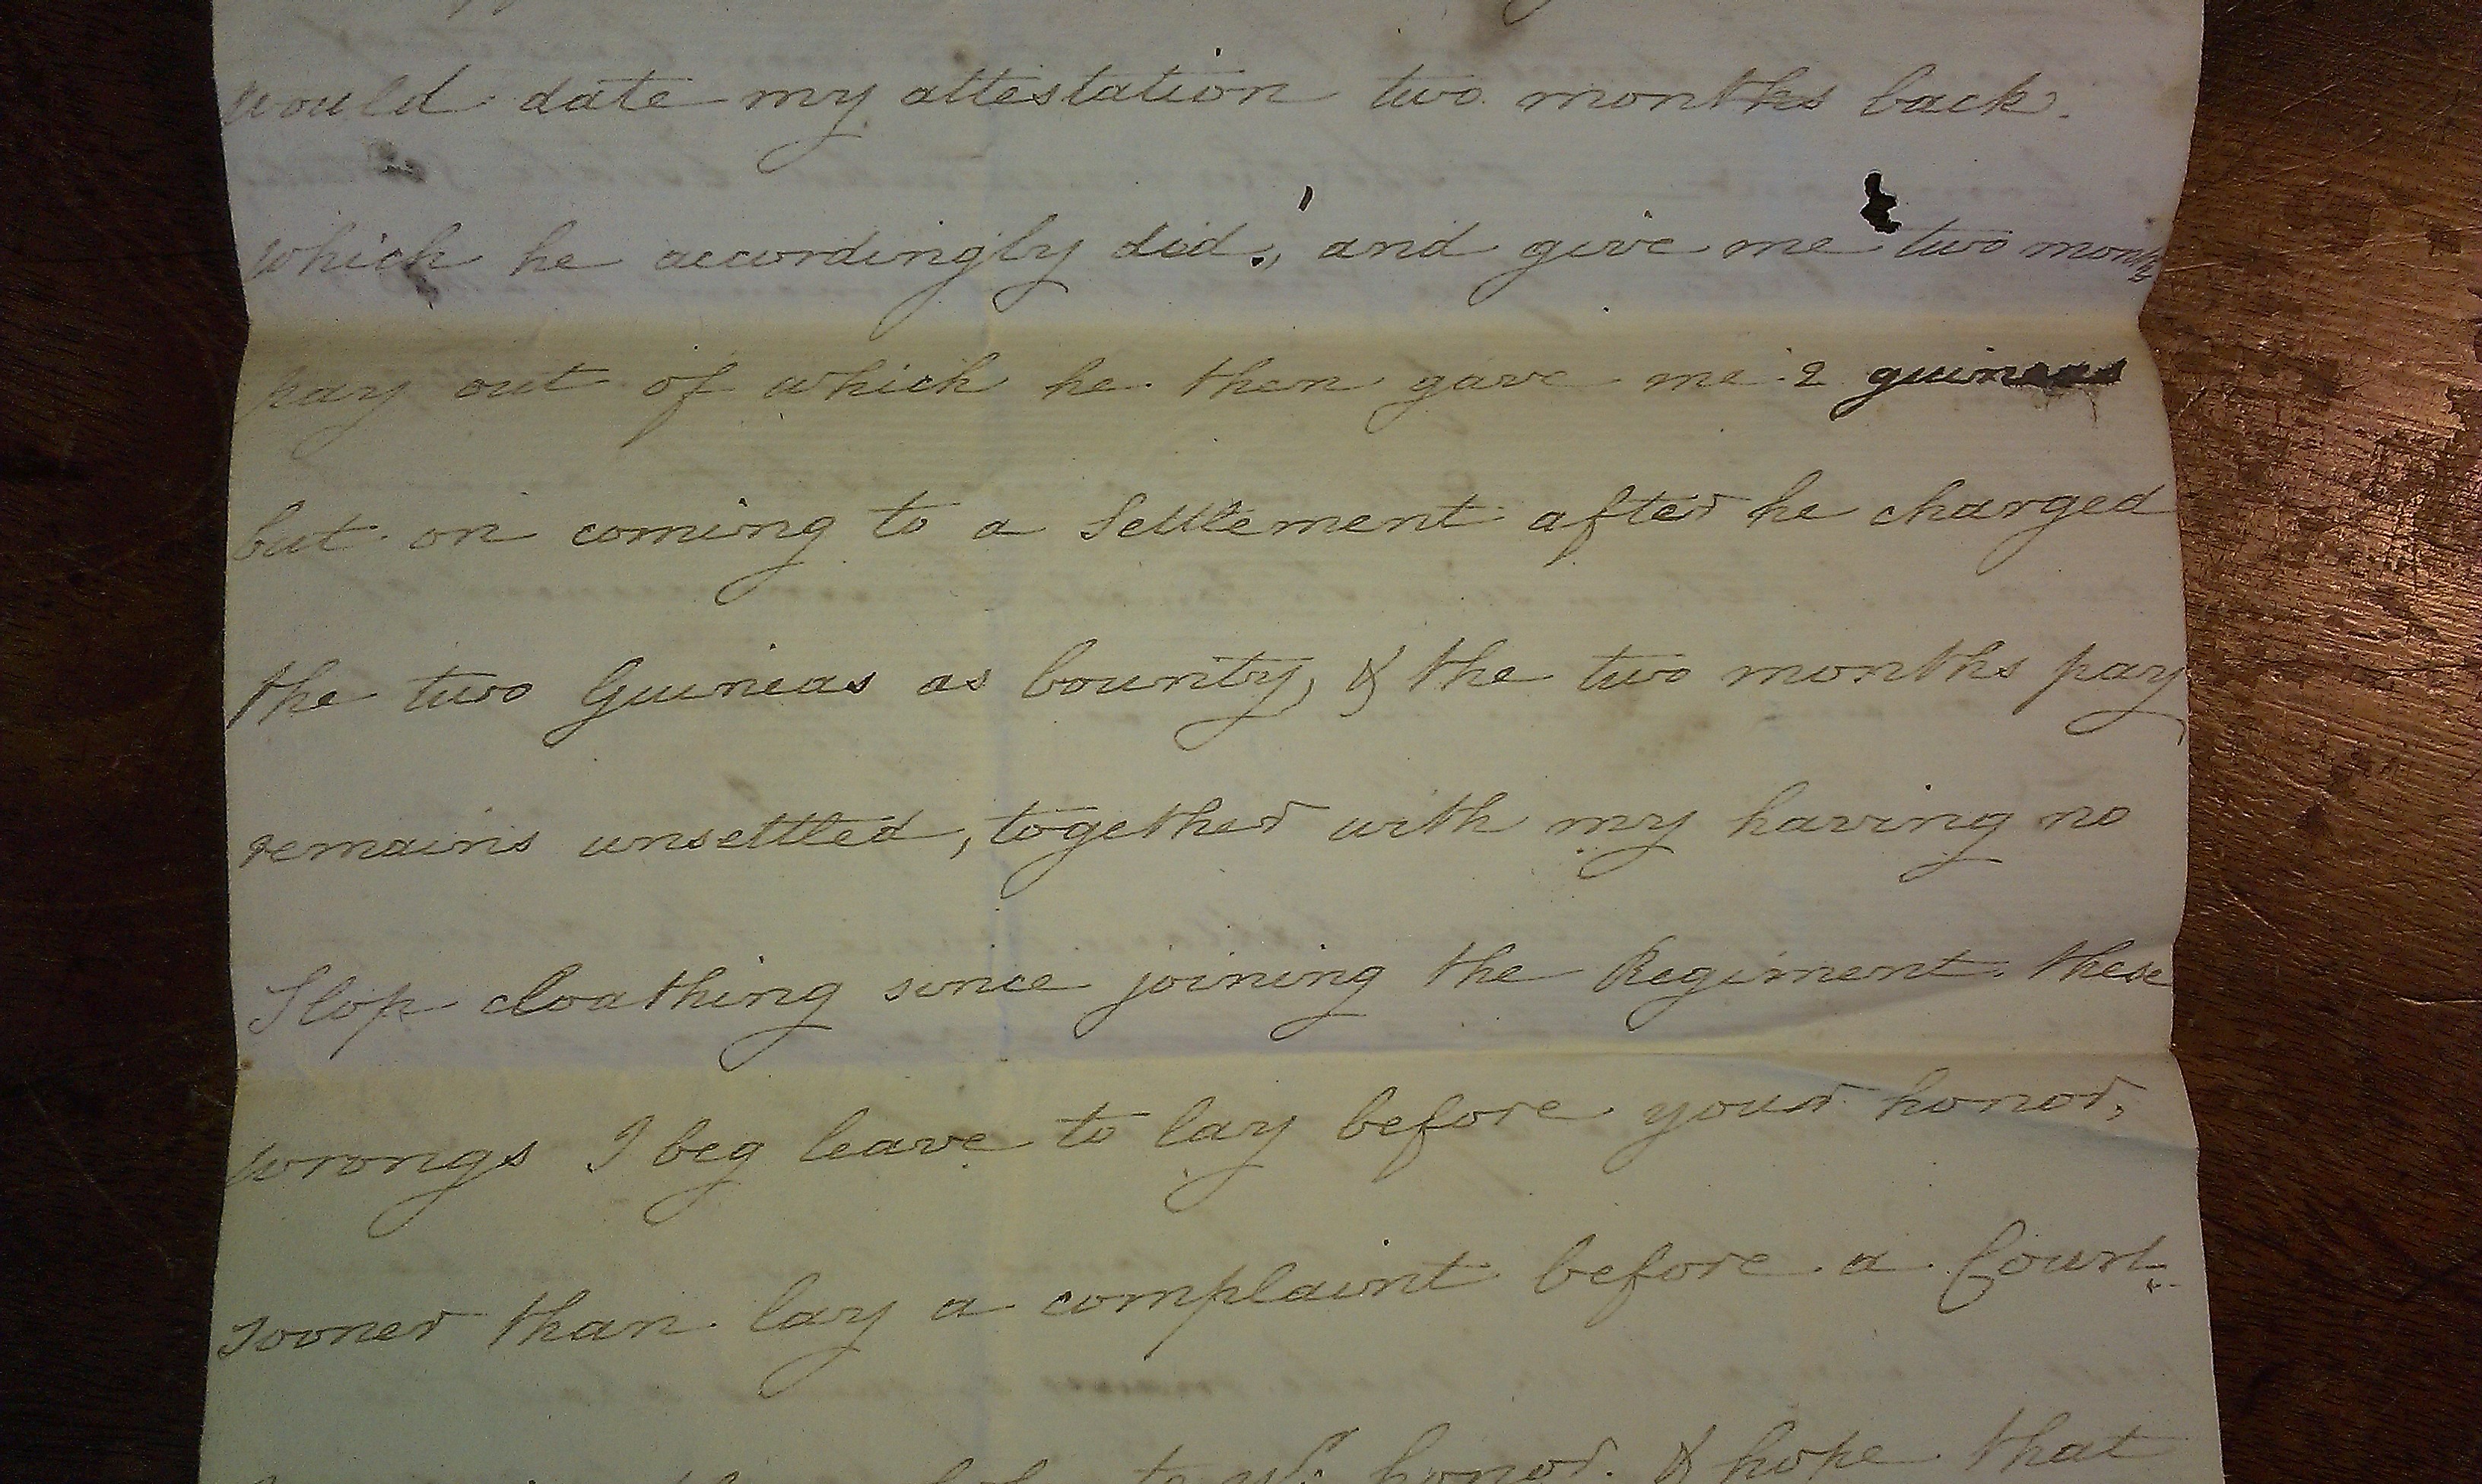 would date my attestation two months back.
which he accordingly did., and give me two months
pay out of which he then gave me 2 guineas
but on coming to a Settlement after he charged
the two Guineas as bounty, & the two months pay
remains unsettled, together with my having no
Slop cloathing since joining the Regiment these
wrongs I beg leave to lay before your honor,
sooner than lay a complaint before a Court
to honor. & hope that